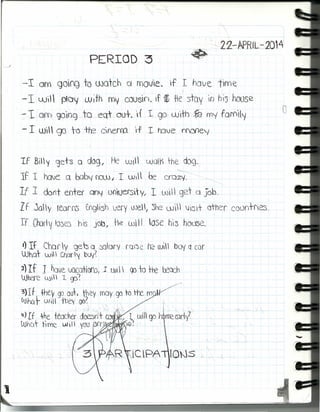 22-APRIL-2014
PERIOD 3
-I am going to watch a movie. if I have time
-I will play with my cousin. if He stay in his house
-I am going to eat out. if I go with my family
-I will go to the cinema if I have money
If Billy gets a dog, He will walk the dog.
If I have a baby now, I will be crazy.
If I dont enter any university, I will get a job.
If Sally learns English very well, She will visit other countries.
If Charly loses his job, He will lose his house.
1) If Charly gets a salary raise he will buy a car
What will Charly buy?
2) If I have vacations, I will go to the beach
Where will I go?
3) If they go out, they may go to the mall
What will they go?
4) If the teacher doesn't I will go home early?
What time will you
3 PARTICIPATIONS